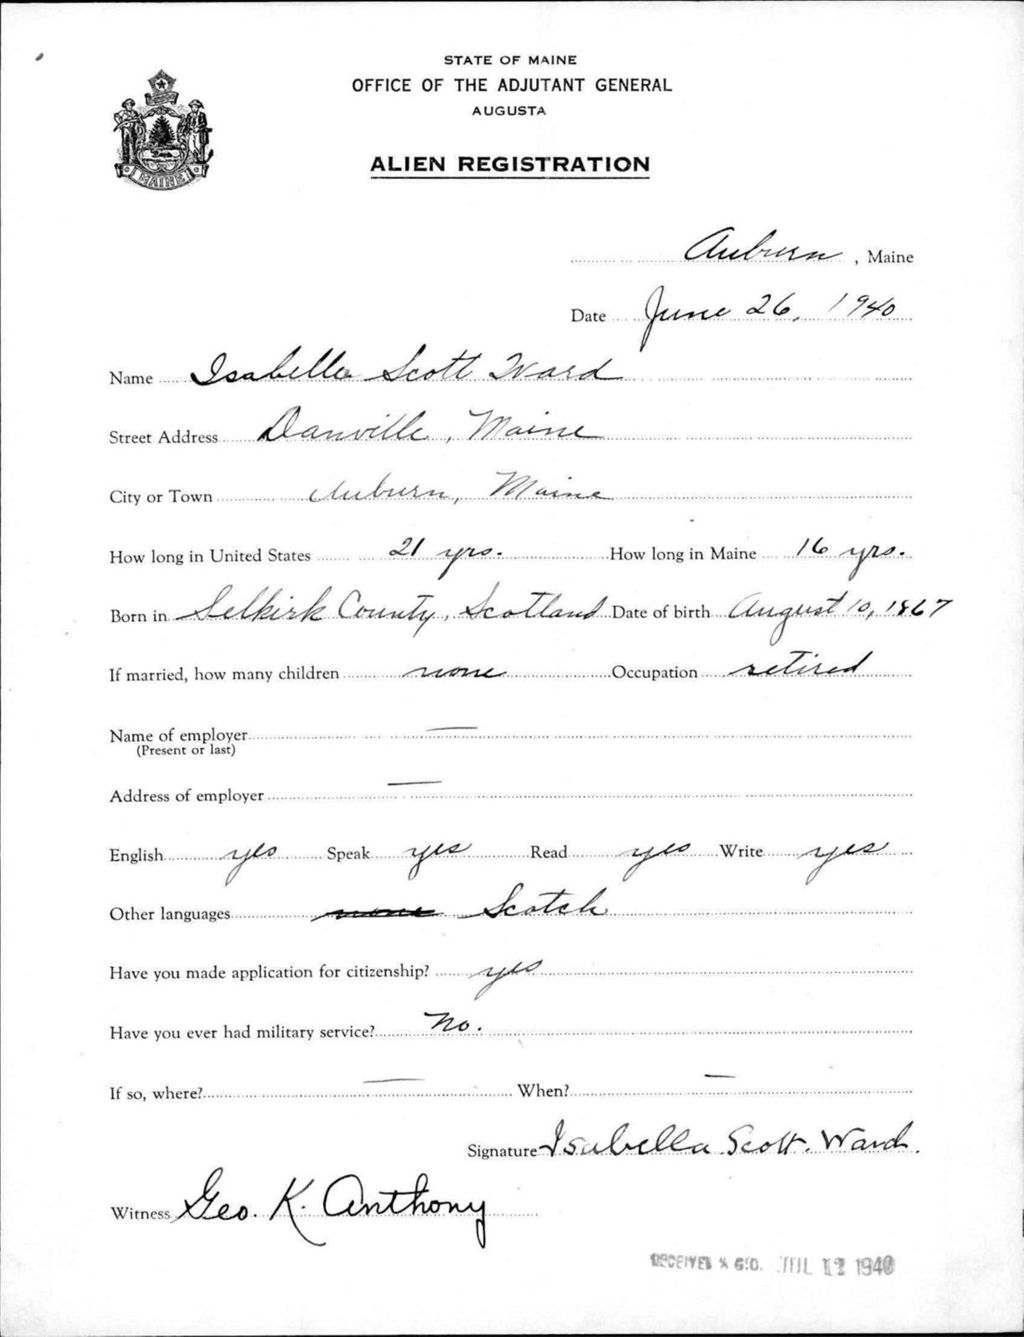 STATE OF MAINE
OFFICE OF THE ADJUTANT GENERAL
AUGUSTA
MAINE
ALIEN REGISTRATION
Auburn, Maine
Date June 26, 1940
Name Isabella Scott Ward
Street Address Danville, Maine
City or Town Auburn, Maine
How long in United States 21 yrs. How long in Maine 16 yrs.
Born in Selkirk County, Scotland Date of birth August 10, 1867
If married, how many children none Occupation retired
Name of employer —
(Present or last)
Address of employer —
English yes Speak yes Read yes Write yes
Other languages none Scotch
Have you made application for citizenship? yes
Have you ever had military service? No.
If so, where? — When? —
Signature Isabella Scott. Ward.
Witness Geo. K. Anthony
RECEIVED A.G.O. JUL 12 1940